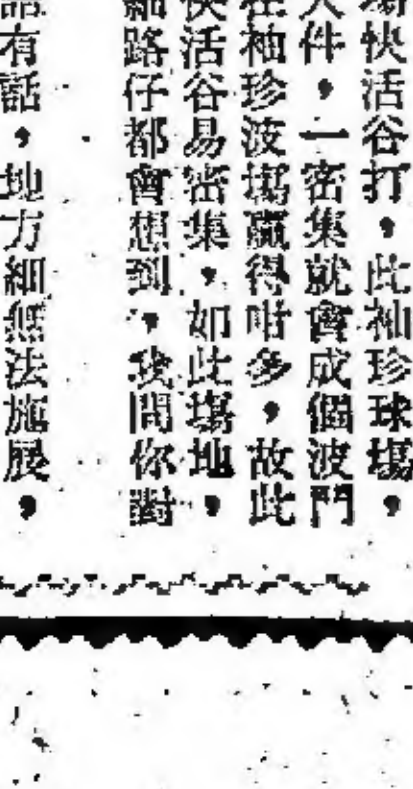 場快活谷打，此袖珍球場，
大件，一密集就會成個波門
在袖珍波場贏得咁多，故此
快活谷易密集，如此場地，
細路仔都會想到，我問你對
話有話，地方細無法施展，